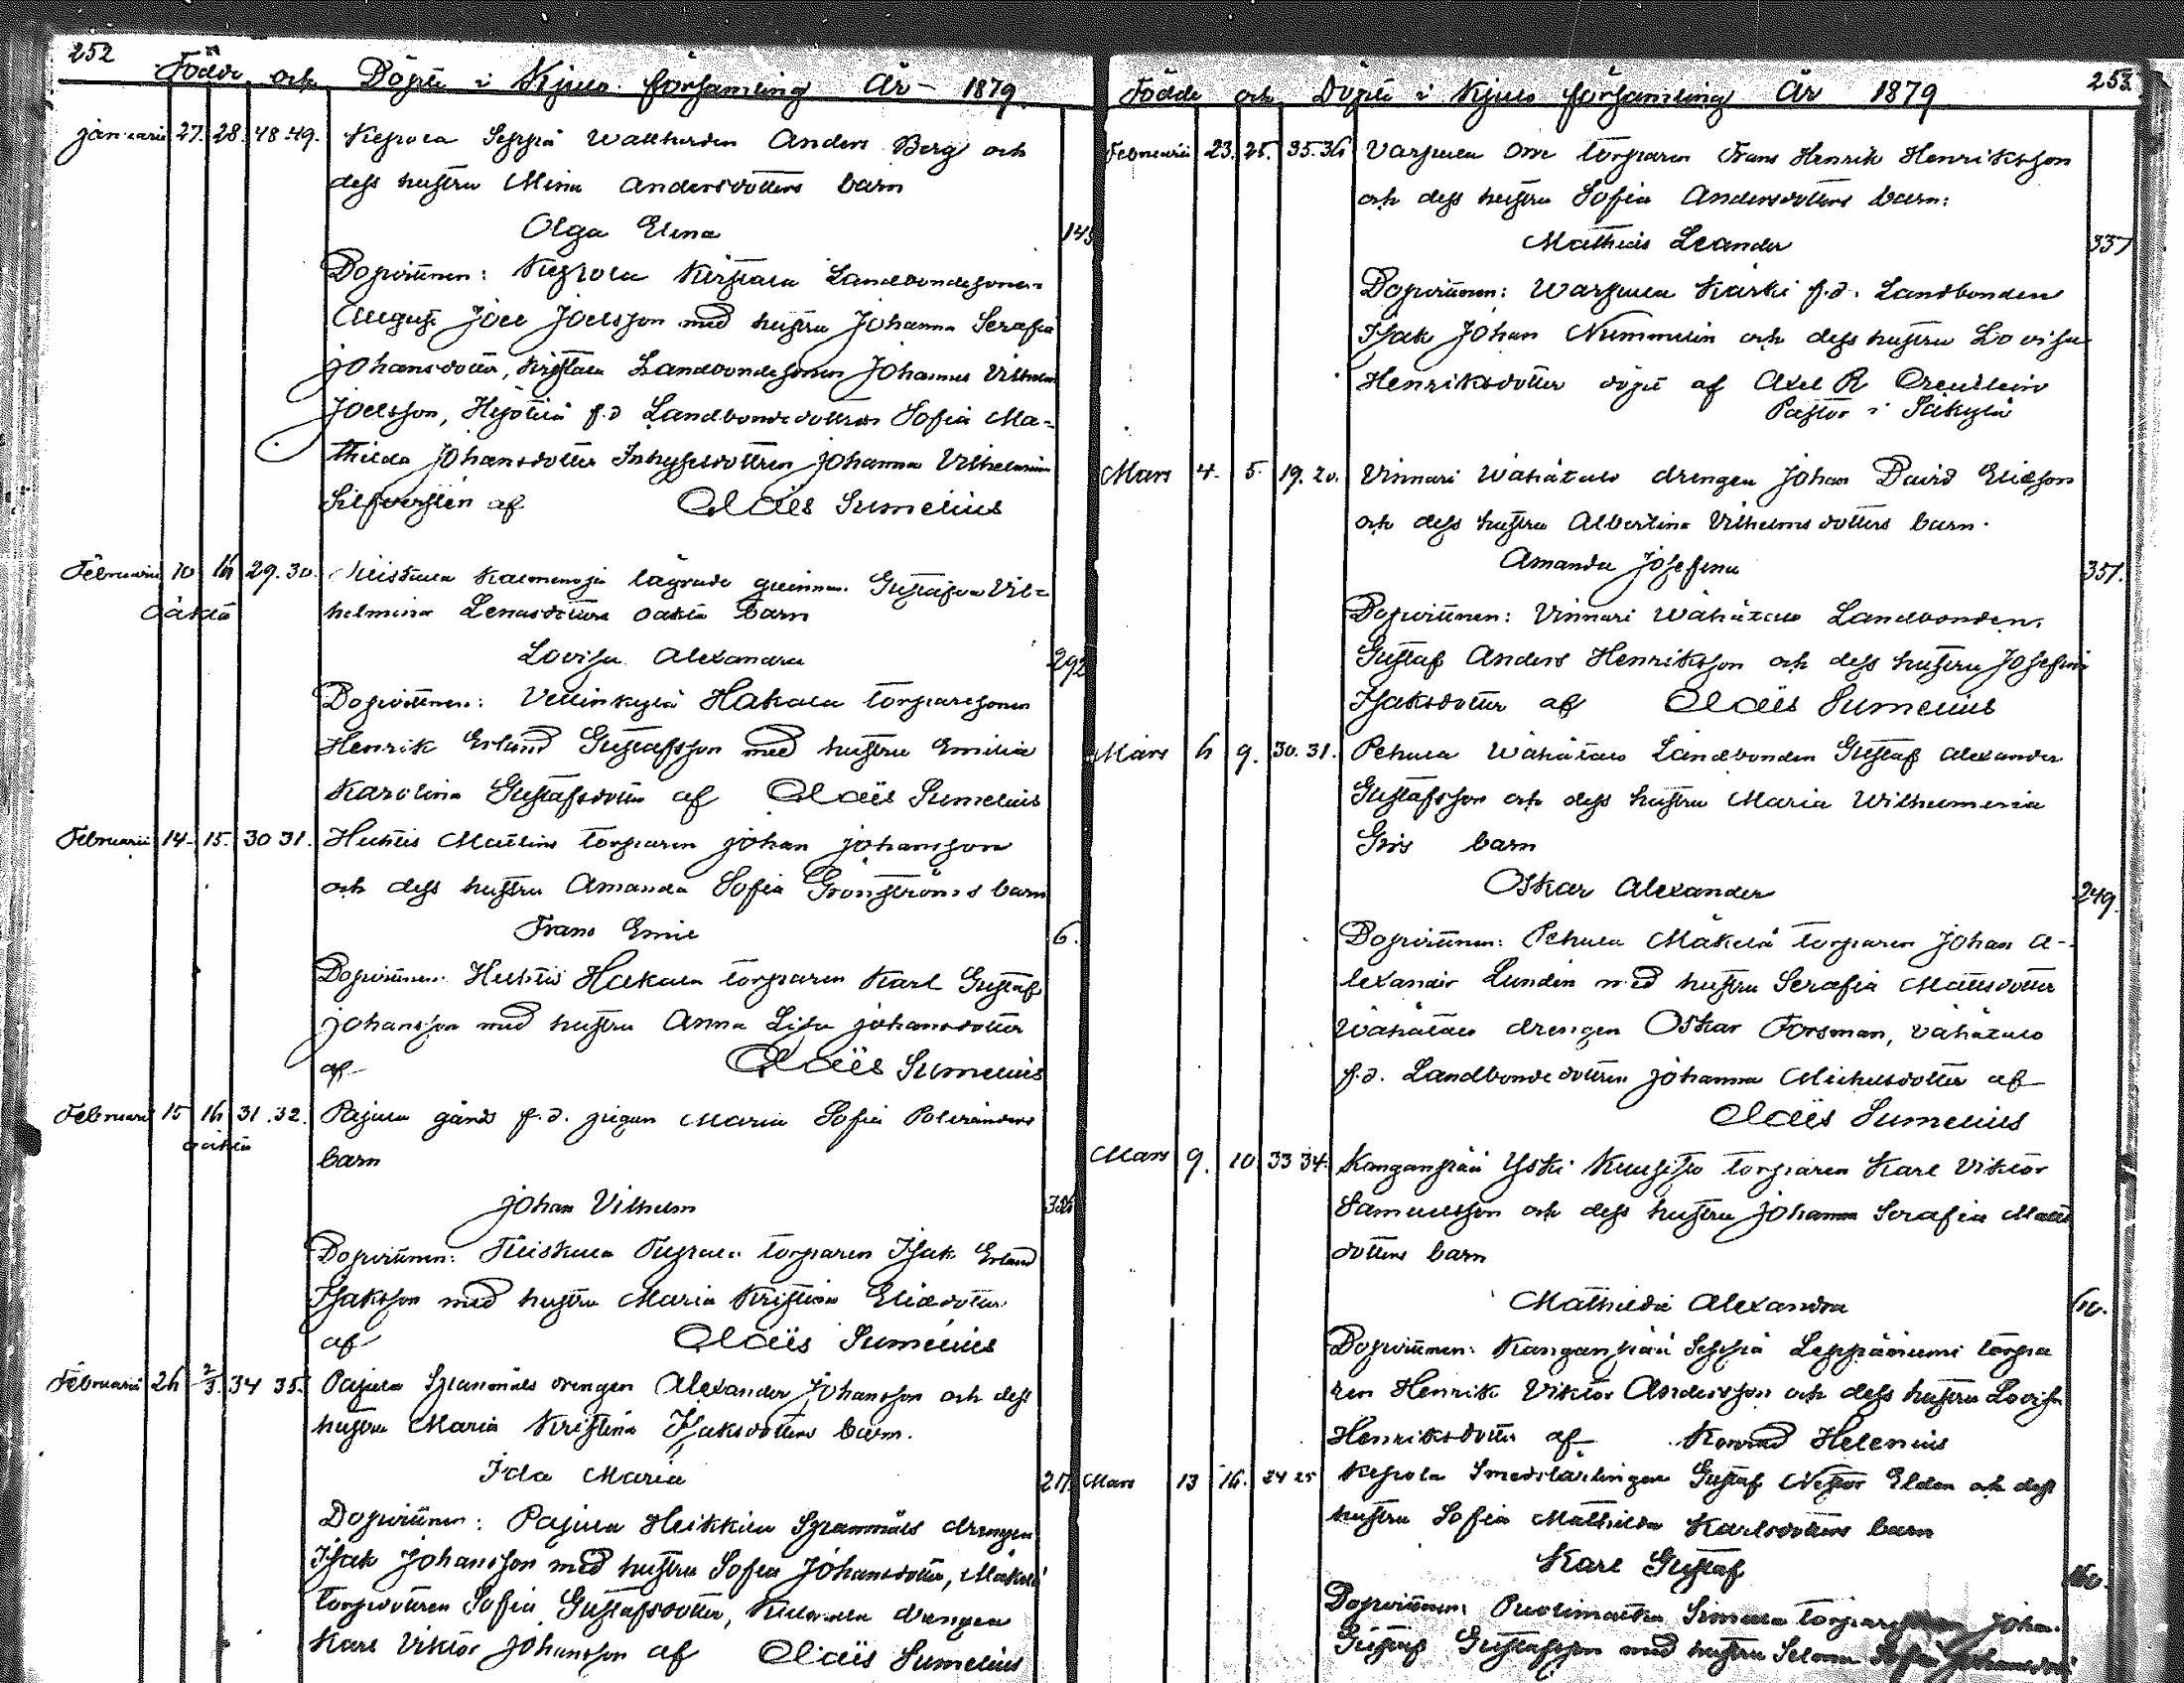 252
Födde och Döpte i Kjulo församling År 1879
Januarii 27. 28. 48.49. Kepola Seppä Anders Berg och
dess hustru Mina Andersdotters barn
Olga Elina
Dopvittnen: Kepola Landbondesonen
August Joel Joelsson med hustru Johanna Serafia
Johansdotter, Landbondesonen Johannes Vilhelm
Joelsson, f.d Landbondedottren Sofia Ma-
thilda Johansdotter Inhysesdottren Johanna Vilhelmina
af Claës Sumelius
Februarii 10 16 29.30. lägrade qvinnan Gustafva Vil-
oäkta
helmina oäkta barn
Lovisa Alexandra
292
Dopvittnen: Vellinkylä Hakala torparesonen
Henrik Erland Gustafsson med hustru Emilia
Karolina Gustafsdotter af Claës Sumelius
Februarii 14. 15. 30 31. Huhtis torparen Johan Johansson
och dess hustru Amanda Sofia Grönströms barn
Frans Emil
6.
Dopvittnen: Huhtis Hakala torparen Karl Gustaf
Johansson med hustru Anna Lisa Johansdotter
af Claës Sumelius
Februarii 15 16 31.32. Pajula f.d. pigan Maria Sofia
oäkta
barn
Johan Vilhelm
Dopvittnen: torparen Isak Erland
Isaksson med hustru Maria Kristina Eliædotter
af Claës Sumelius
Februarii 26 2/3. 34 35. Pajula drengen Alexander Johansson och dess
hustru Maria Kristina Isaksdotters barn.
Ida Maria
217.
Dopvittnen: Pajula Heikkilä drengen
Isak Johansson med hustru Sofia Johansdotter, Mäkelä
Sofia Gustafsdotter, drengen
Karl Viktor Johansson af Claës Sumelius
253.
Födde och Döpte i Kjulo församling År 1879
Februarii 23. 25. 35.36 torparen Frans Henrik Henriksson
och dess hustru Sofia Andersdotters barn:
Mathias Leander
337
Dopvittnen: Karhi f.d. Landbonden
Isak Johan Nummelin och dess hustru Lovisa
Henriksdotter döpt af Axel R
Pastor i Säkylä
Mars 4. 5. 19.20. Vinnari Wähätalo drengen Johan David Eliæson
och dess hustru Albertina Vilhelmsdotters barn.
Amanda Josefina
351.
Dopvittnen: Vinnari Wähätalo Landbonden
Gustaf Anders Henriksson och dess hustru Josefina
Isaksdotter af Claës Sumelius
Mars 6 9. 30.31. Pehula Wähätalo Landbonden Gustaf Alexander
Gustafsson och dess hustru Maria Wilhelmina
barn
Oskar Alexander
249.
Dopvittnen: Pehula Mäkelä torparen Johan A-
lexander Lundin med hustru Serafia Mattsdotter
Wähätalo drengen Oskar Forsman, Vähätalo
f.d. Landbondedottren Johanna Michelsdotter af
Claës Sumelius
Mars 9. 10. 33 34. Kanganpää Yski Kuusisto torparen Karl Viktor
Samuelsson och dess hustru Johanna Serafia Matts
dotters barn
Mathilda Alexandra
Dopvittnen: Kanganpää Seppä Leppäniemi torpa
ren Henrik Viktor Andersson och dess hustru Lovisa
Henriksdotter af Konrad Helenius
Mars 13 16. 24 25 Kepola Smedslärlingen Gustaf Nestor Eldén och dess
hustru Sofia Mathilda Karlsdotters barn
Karl Gustaf
Dopvittnen: Simula Johan
Gustaf Gustafsson med hustru